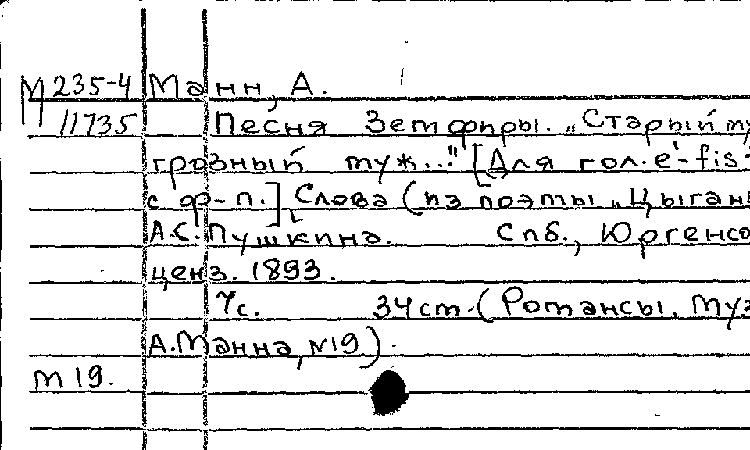 М 235-4 Манн, А.
11735 Песня Земфиры. „Старый му
грозный муж..." [Для гол. e'-fis²
с ф-п.] Слова (из поэмы „Цыган
А.С. Пушкина. Спб., Юргенсо
ценз. 1893.
7с. 34 см. (Романсы. Муз
А. Манна, №19).
м 19.